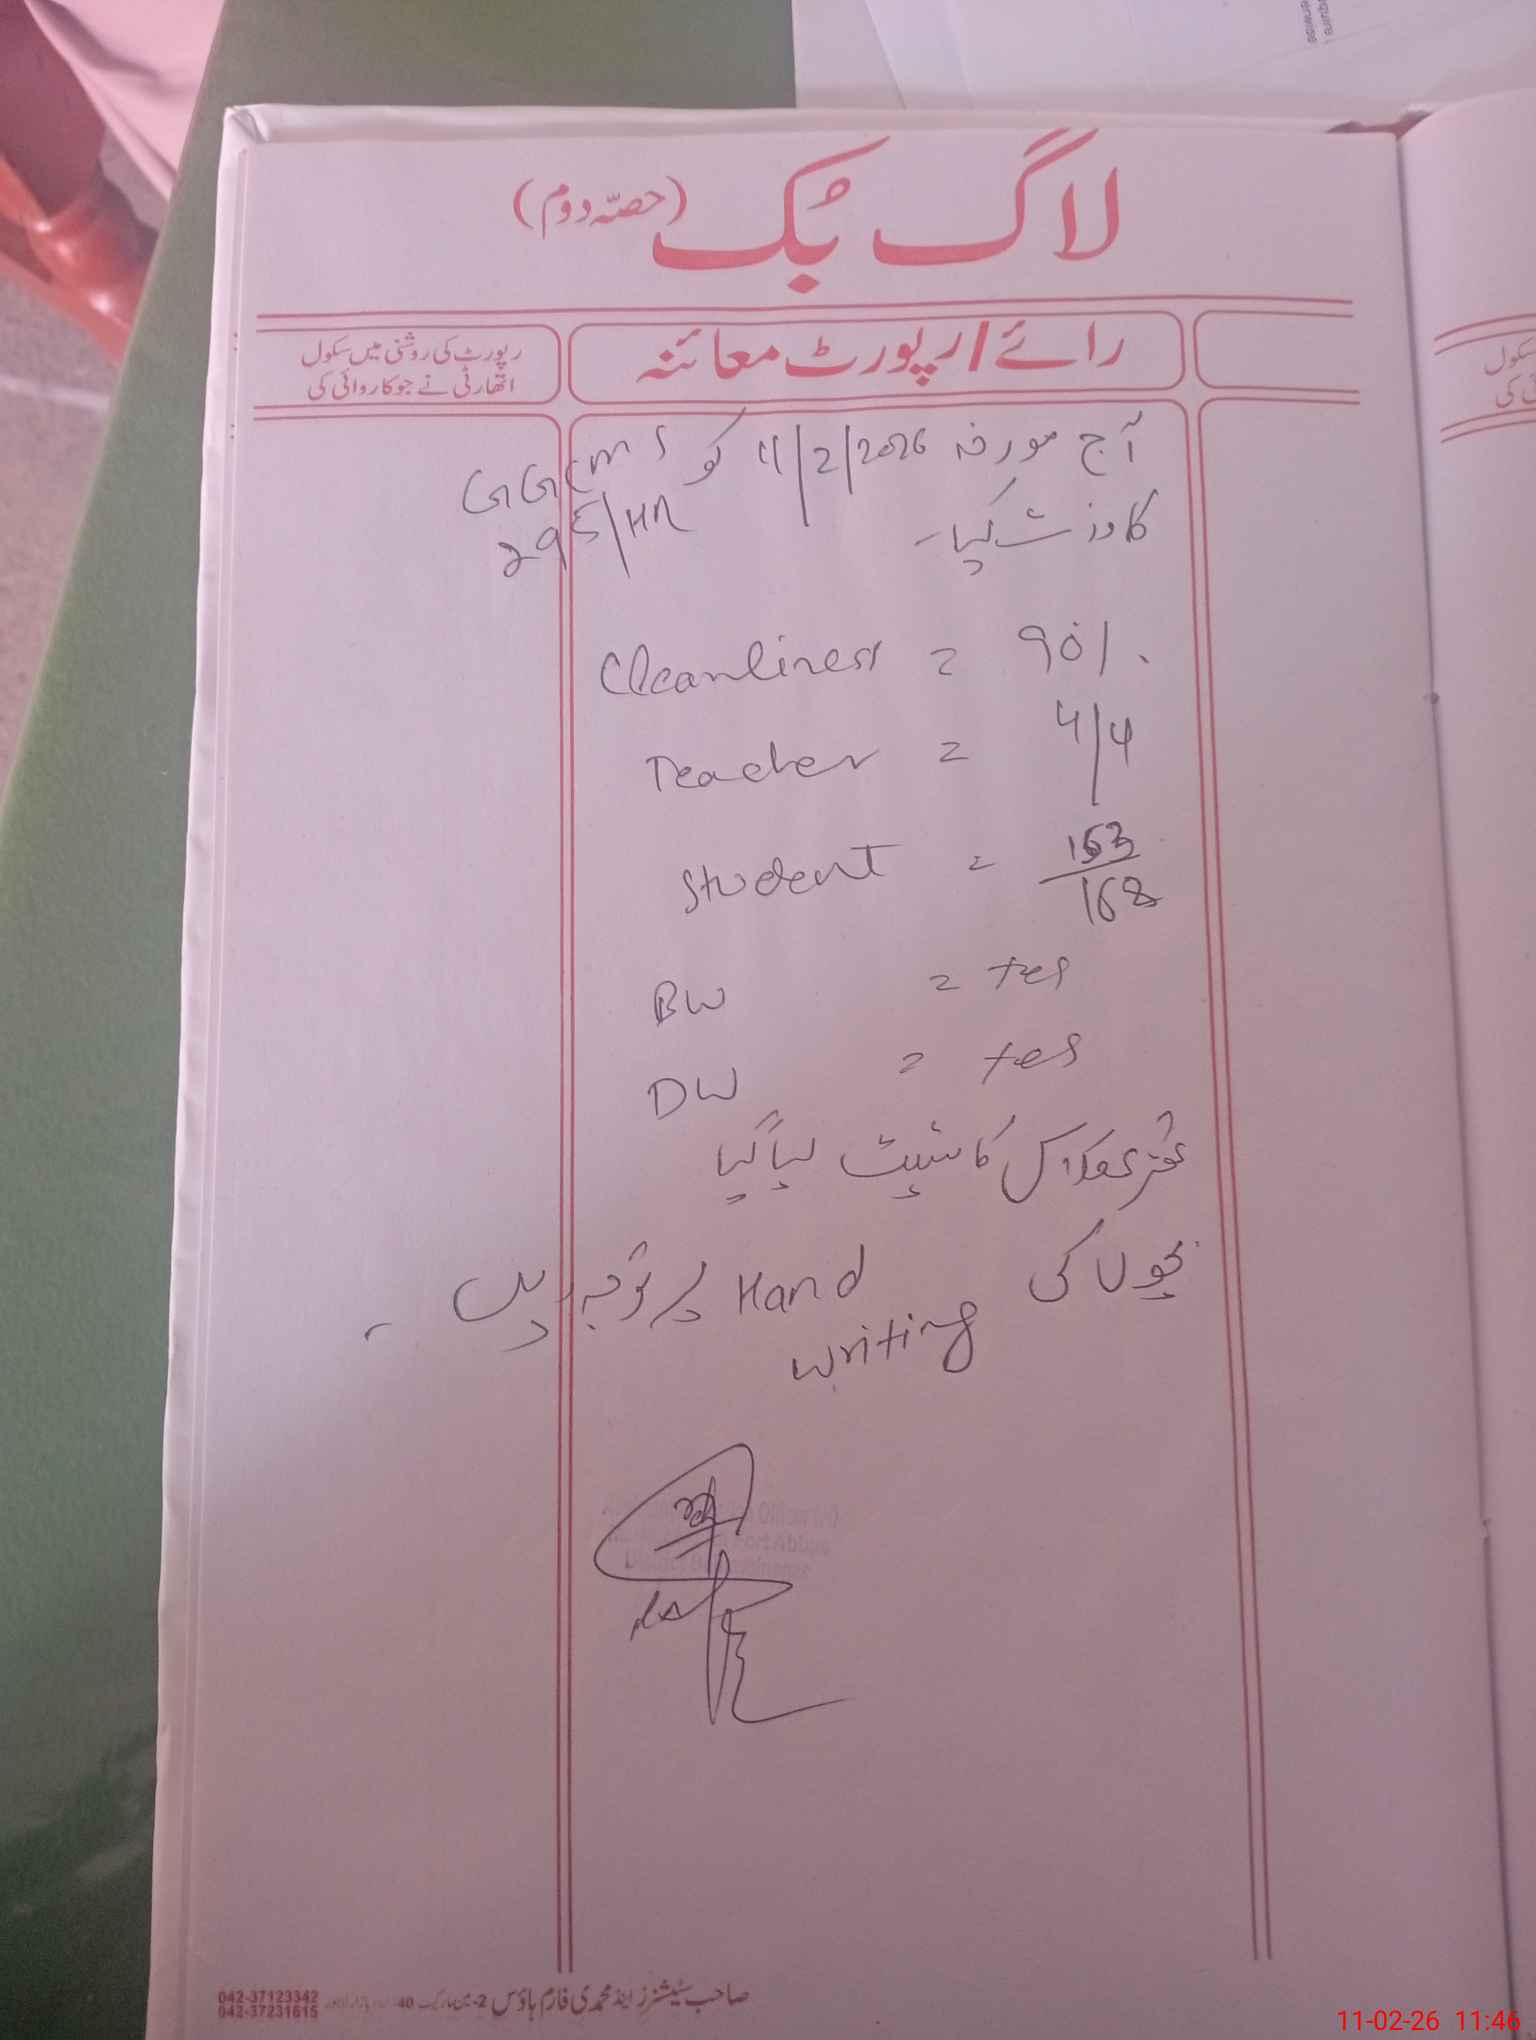 لاگ بُک (حصّہ دوم)
رائے/رپورٹ معائنہ
رپورٹ کی روشنی میں سکول
اتھارٹی نے جو کاروائی کی
آج مورخہ 11/2/2026 کو GGCMS
295/HR کا وزٹ کیا۔
Cleanliness = 90%.
Teacher = 4/4
Student = 153/168
BW = Yes
DW = Yes
کلاس کا ٹیسٹ لیا گیا
بچوں کی Hand writing پر توجہ دیں۔
صاحب سٹیشنرز اینڈ محمدی فارم ہاؤس 2-
40-
042-37123342
042-37231615
سکول
ئی کی
11-02-26 11:46